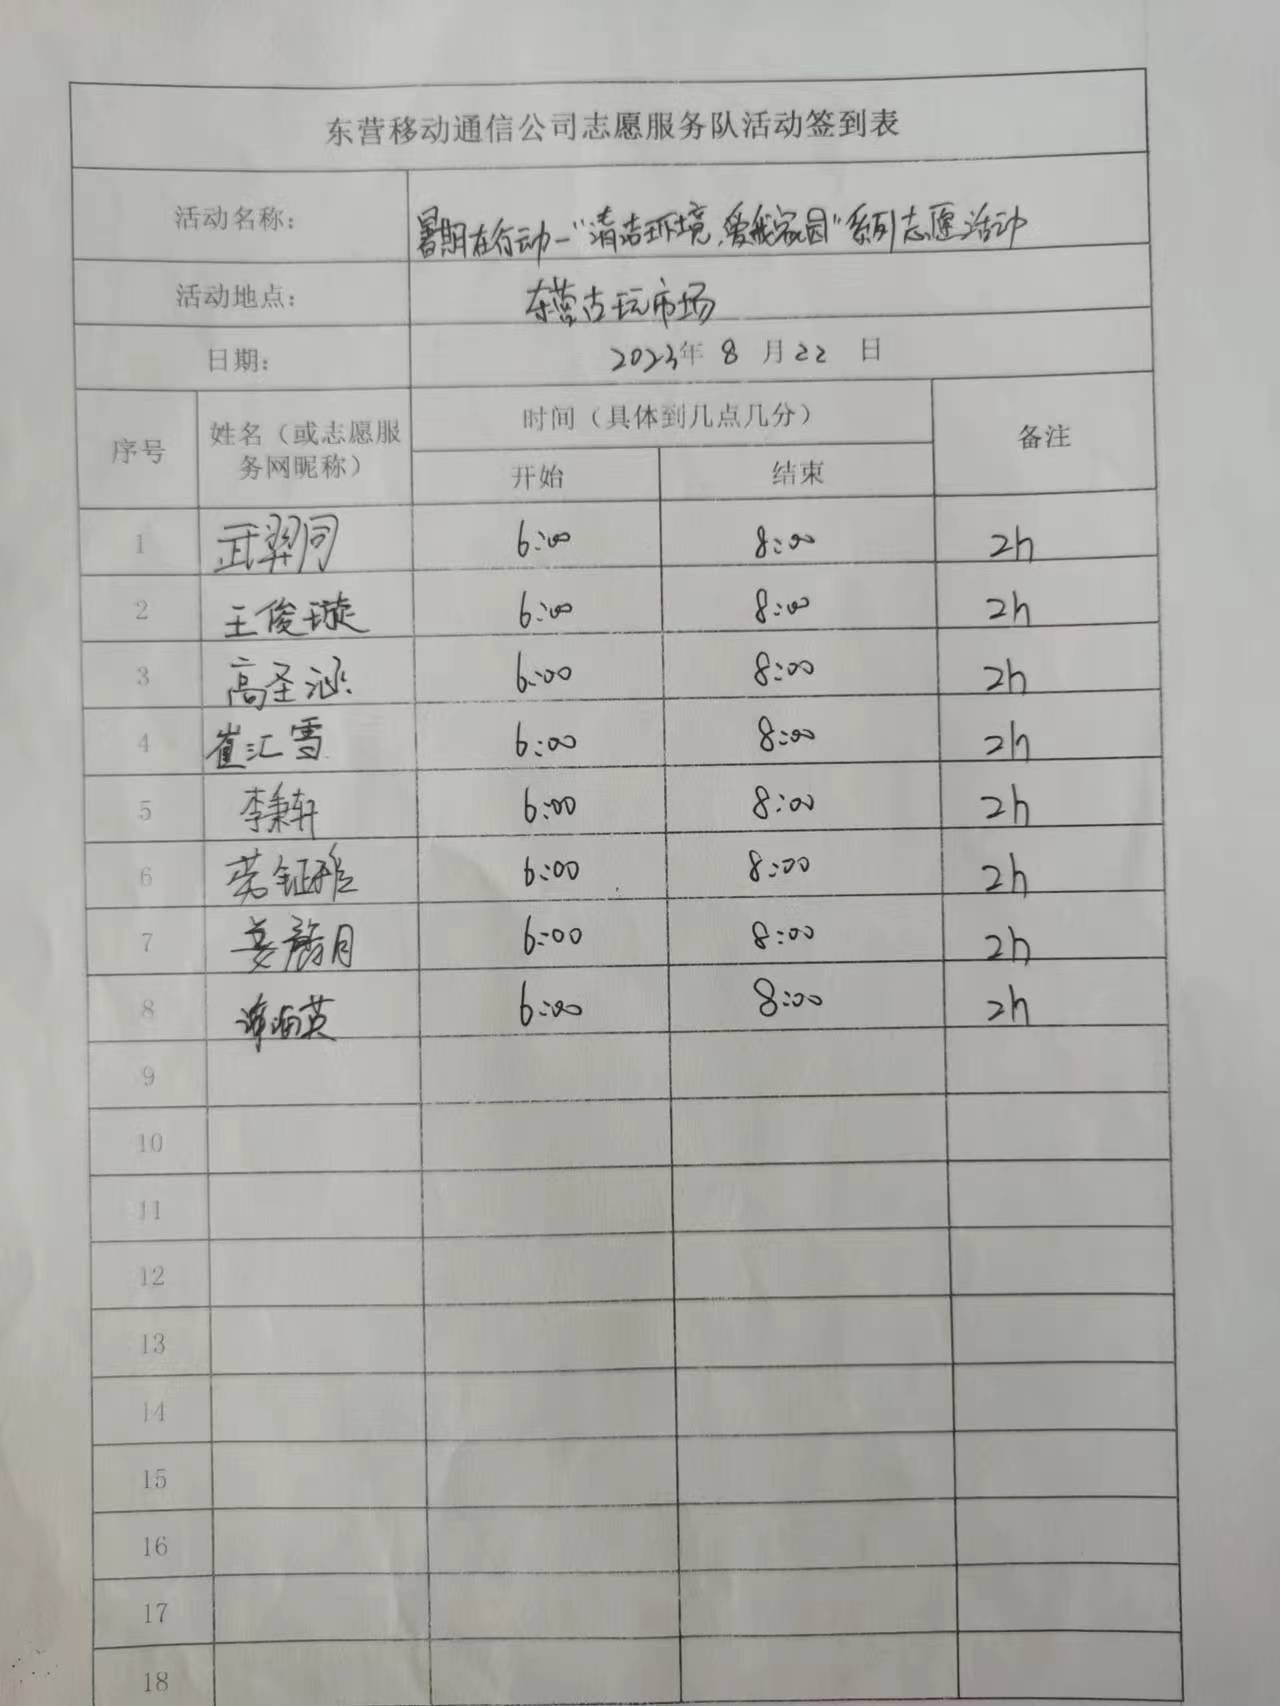 东营移动通信公司志愿服务队活动签到表
活动名称: 暑期在行动-"清洁环境,爱我家园"系列志愿活动
活动地点: 东营古玩市场
日期: 2023年 8 月 22 日
序号 姓名（或志愿服务网昵称） 时间（具体到几点几分） 备注
开始 结束
1 武羿同 6:00 8:00 2h
2 王俊璇 6:00 8:00 2h
3 高圣涵 6:00 8:00 2h
4 崔汇雪 6:00 8:00 2h
5 李秉轩 6:00 8:00 2h
6 6:00 8:00 2h
7 6:00 8:00 2h
8 6:00 8:00 2h
9
10
11
12
13
14
15
16
17
18